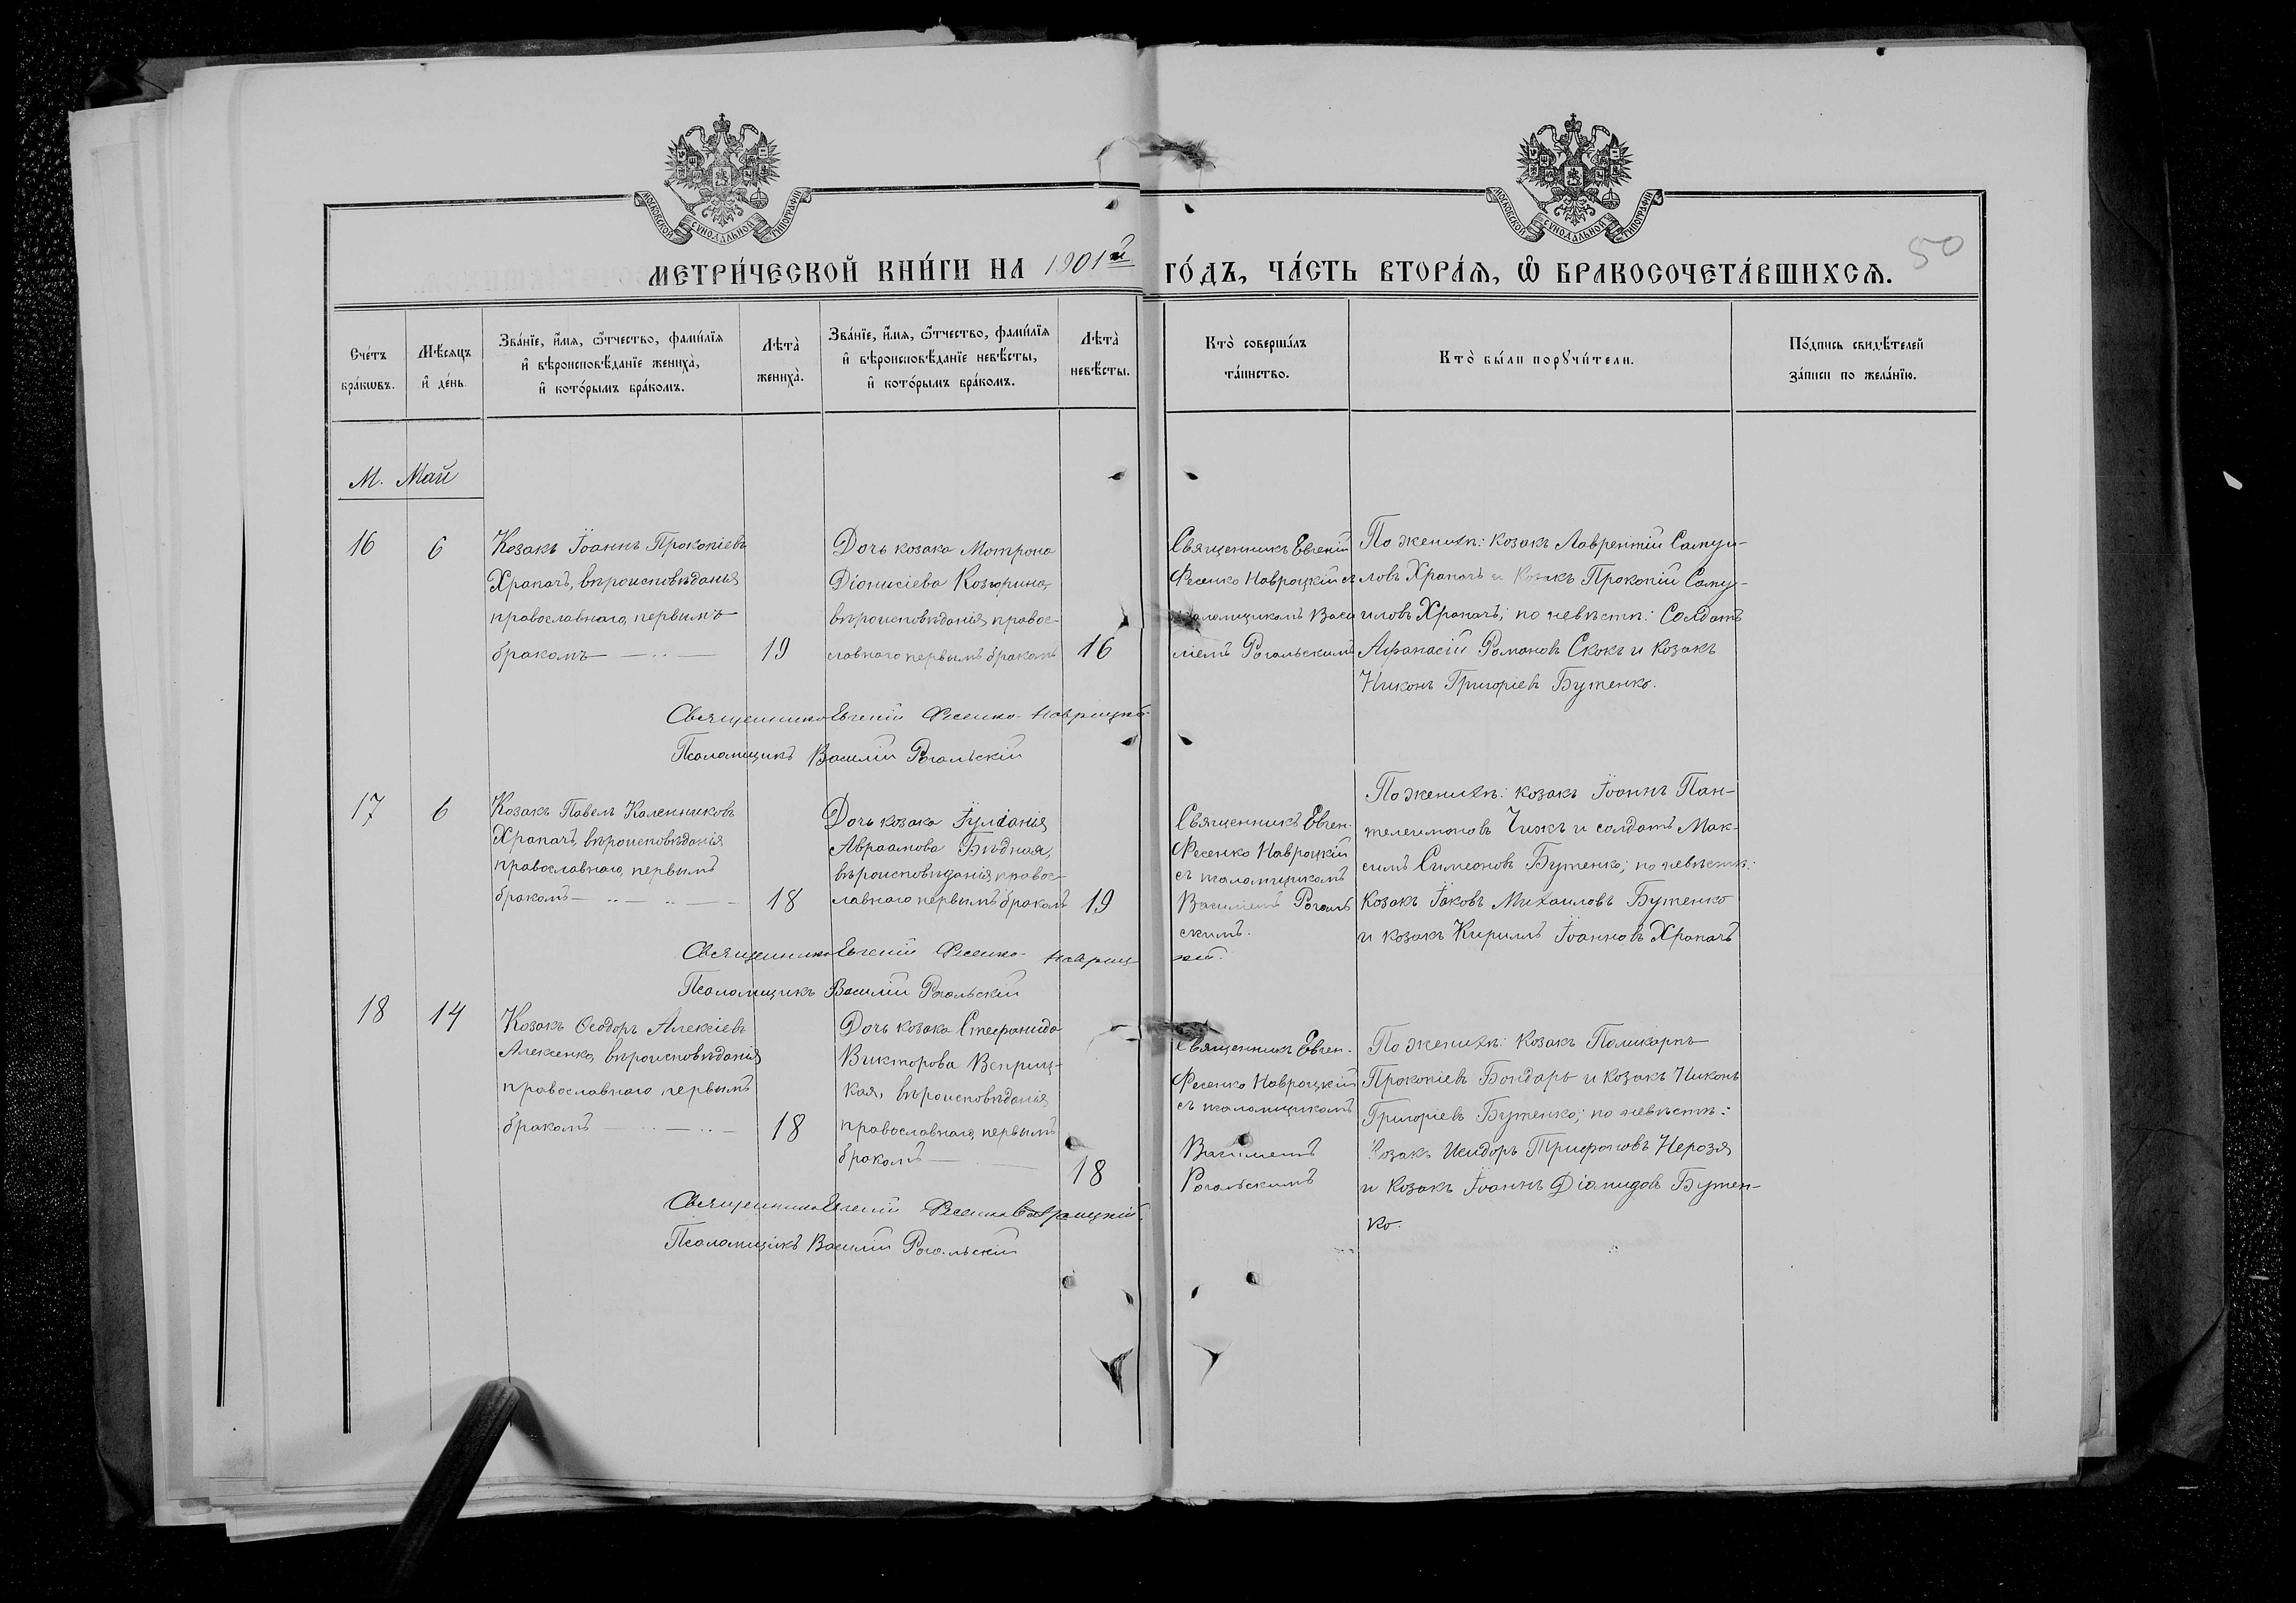 МОСКОВСКОЙ СѴНОДАЛЬНОЙ ТИПОГРАФІИ
МОСКОВСКОЙ СѴНОДАЛЬНОЙ ТИПОГРАФІИ
50
МЕТРИ́ЧЕСКОЙ КНИ́ГИ НА 1901й ГО́ДЪ, ЧА́СТЬ ВТОРА́Ѧ, Ѡ҆ БРАКОСОЧЕТА́ВШИХСѦ.
Сче́тъ
бра́кѡвъ.
Мѣ́сѧцъ
и҆ де́нь.
Зва́нїе, и҆́мѧ, ѻ҆́тчество, фами́лїѧ
и҆ вѣроисповѣ́данїе жениха̀,
и҆ кото́рымъ бра́комъ.
Лѣта̀
жениха̀.
Зва́нїе, и҆́мѧ, ѻ҆́тчество, фами́лїѧ
и҆ вѣроисповѣ́данїе невѣ́сты,
и҆ кото́рымъ бра́комъ.
Лѣта̀
невѣ́сты.
Кто̀ соверша́лъ
та́инство.
Кто̀ бы́ли порꙋчи́тели.
По́дпись свидѣ́телей
за́писи по жела́нїю.
М. Май
16
6
Козакъ Іоаннъ Прокопіевъ
Храпачъ, вѣроисповѣданія
православнаго, первымъ
бракомъ
19
Дочь козака Мотрона
Діонисіева Козюрина,
вѣроисповѣданія правос-
славнаго первымъ бракомъ
16
Священникъ Евгеній
Фесенко Навроцкій съ
псаломщикомъ Васи
ліемъ Рогальскимъ
По женихѣ: козакъ Лаврентій Самуи-
ловъ Храпачъ и Козакъ Прокопій Саму-
иловъ Храпачъ; по невѣстѣ: Солдатъ
Афанасій Романовъ Скокъ и козакъ
Никонъ Григоріевъ Бутенко.
Священникъ Евгеній Фесенко-Навроцкій
Псаломщикъ Василій Рогальскій
17
6
Козакъ Павелъ Каленниковъ
Храпачъ, вѣроисповѣданія
православнаго, первымъ
бракомъ
18
Дочь козака Іуліанія
Авраамова Бѣдная,
вѣроисповѣданія правос-
лавнаго первымъ бракомъ
19
Священникъ Евген.
Фесенко Навроцкій
съ псаломщикомъ
Василіемъ Рогаль
скимъ.
По женихѣ: козакъ Іоаннъ Пан-
телеимоновъ Чижъ и солдатъ Мак-
симъ Симеоновъ Бутенко; по невѣстѣ:
Козакъ Іаковъ Михаиловъ Бутенко
и козакъ Кириллъ Іоанновъ Храпачъ
Священникъ Евгеній Фесенко-Навроц кій.
Псаломщикъ Василій Рогальскій
18
14
Козакъ Ѳеодоръ Алексіевъ
Алексенко, вѣроисповѣданія
православнаго, первымъ
бракомъ
18
Дочь козака Стефанида
Викторова Веприц-
кая, вѣроисповѣданія
православнаго, первымъ
бракомъ
18
Священникъ Евген.
Фесенко Навроцкій
съ псаломщикомъ
Василіемъ
Рогальскимъ
По женихѣ: Козакъ Поликарпъ
Прокопіевъ Бондарь и козакъ Никонъ
Григоріевъ Бутенко; по невѣстѣ:
Козакъ Исидоръ Трифоновъ Нерозя
и Козакъ Іоаннъ Діамидовъ Бутен-
ко.
Священникъ Евгеній Фесенко Навроцкій.
Псаломщикъ Василій Рогальскій